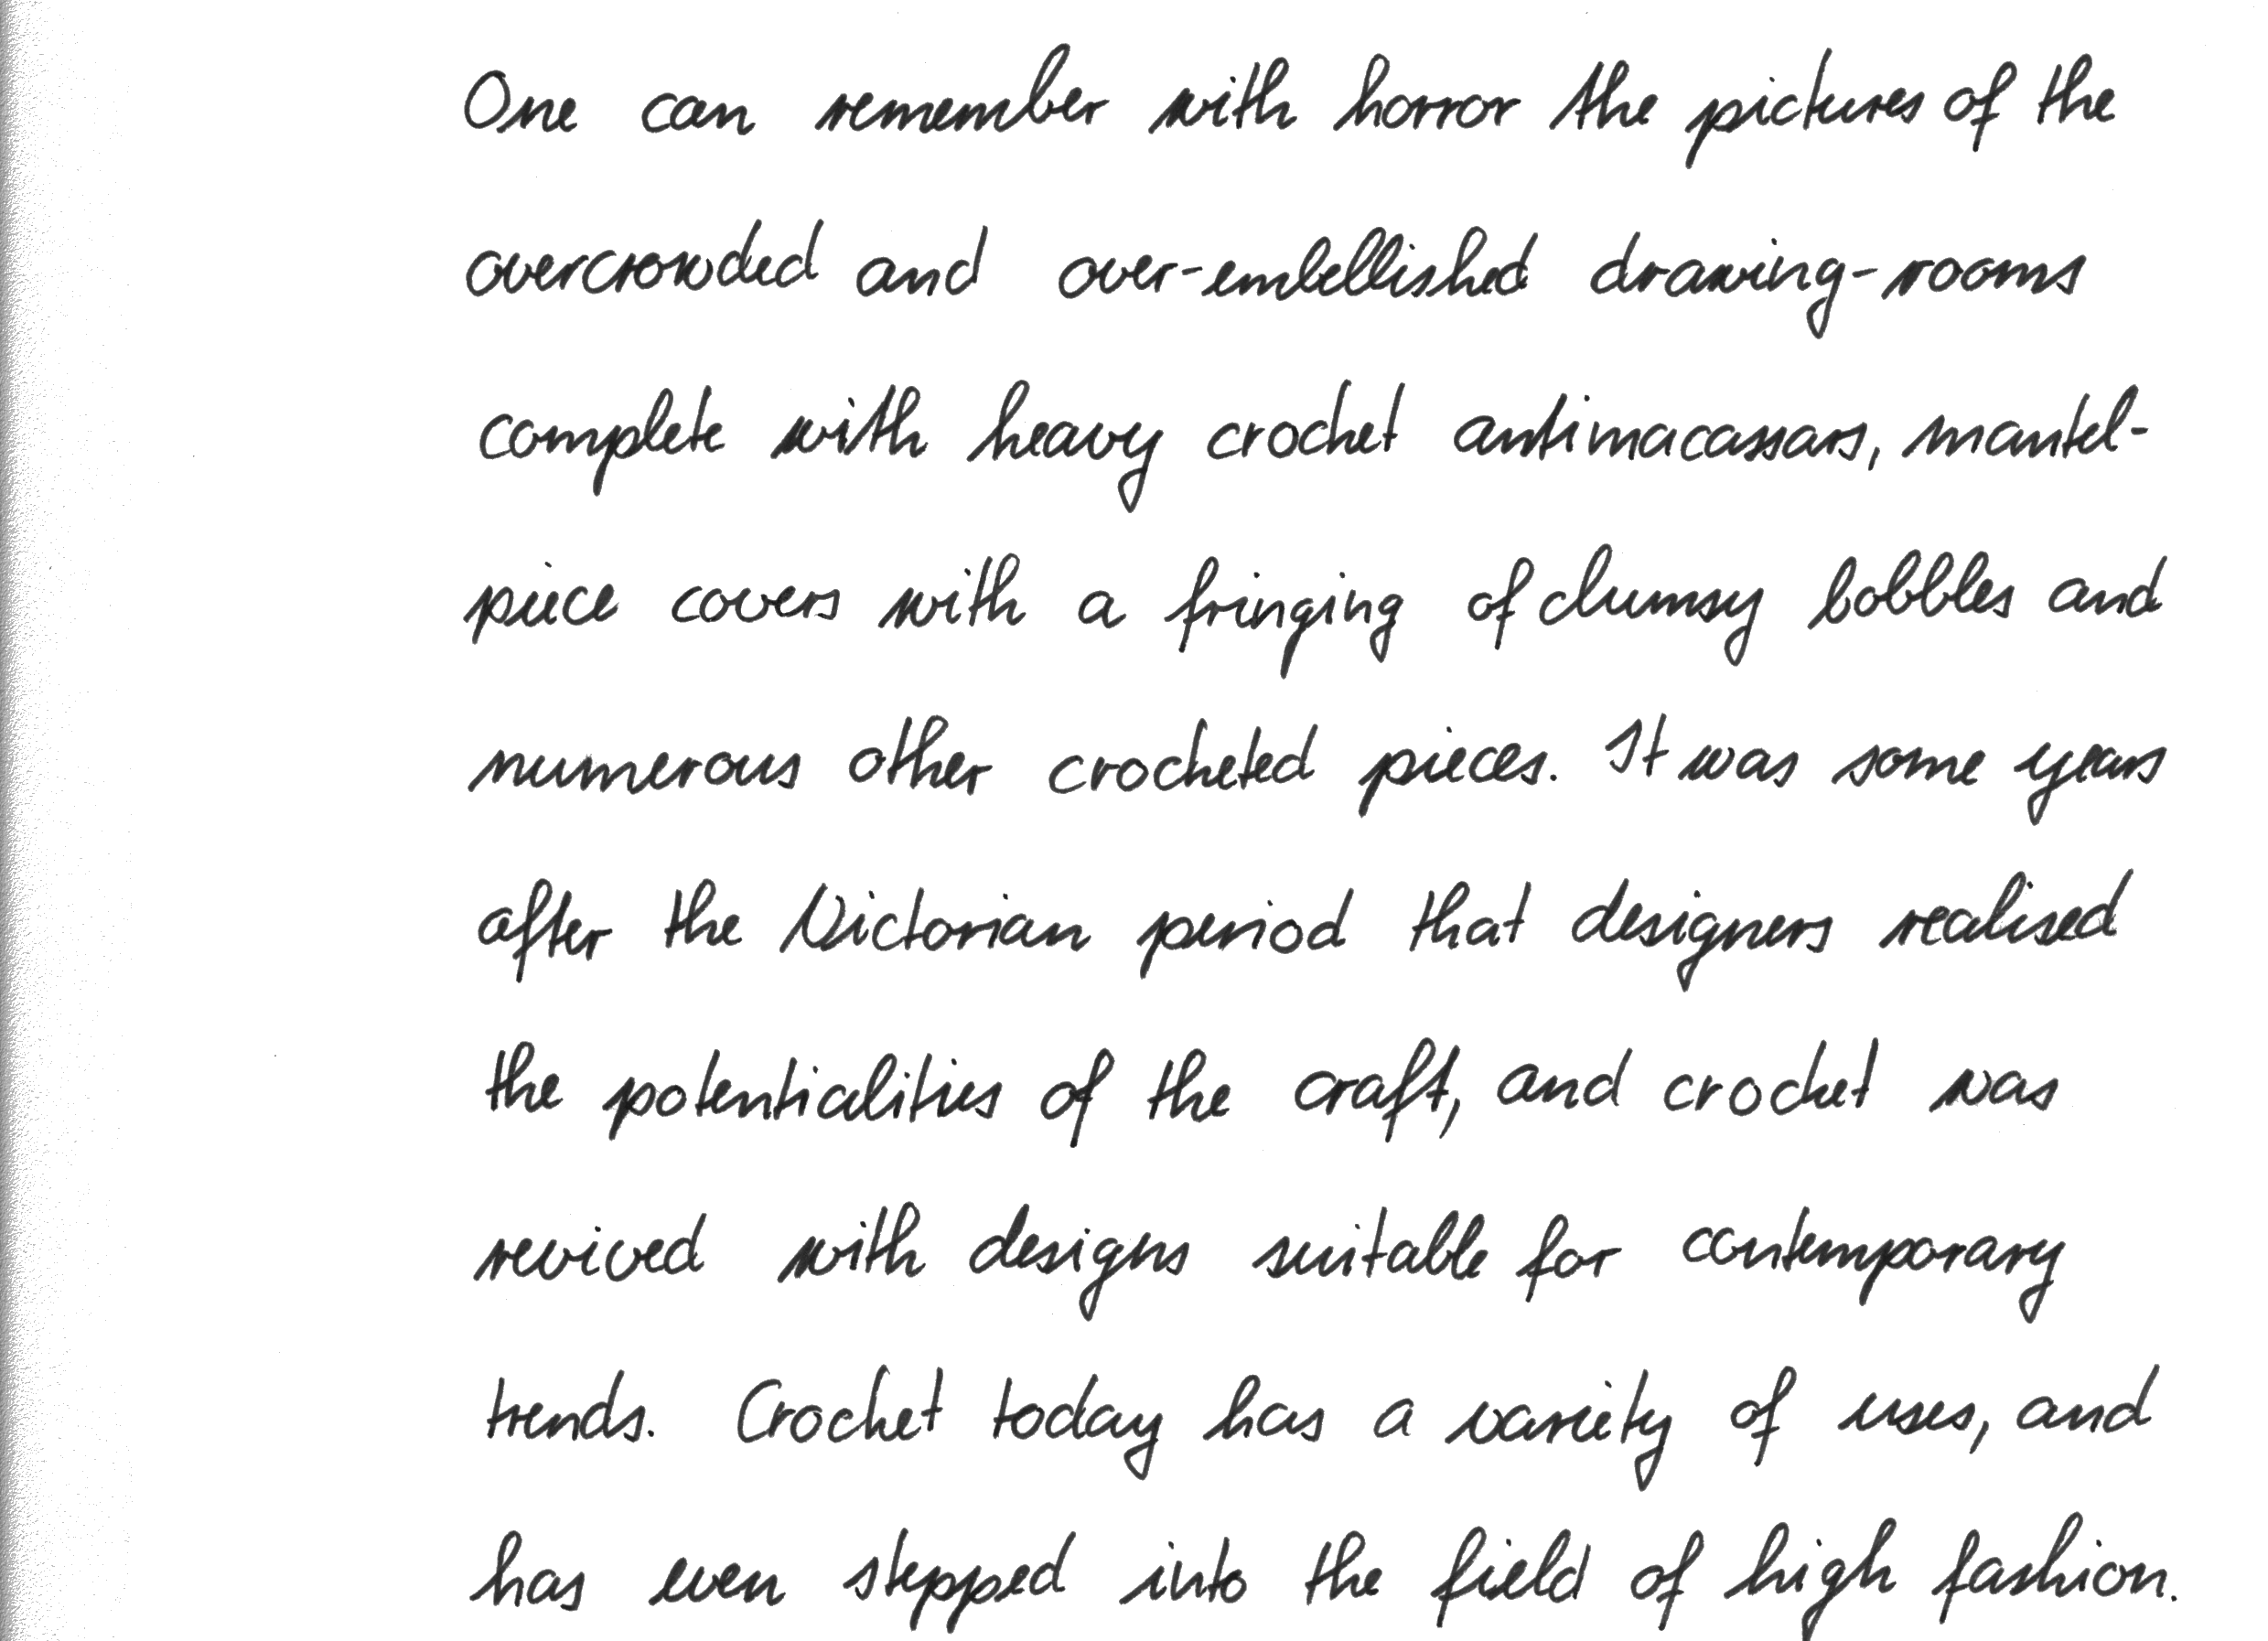 One can remember with horror the pictures of the
overcrowded and over-embellished drawing-rooms
complete with heavy crochet antimacassars, mantel-
piece covers with a fringing of clumsy bobbles and
numerous other crocheted pieces. It was some years
after the Victorian period that designers realised
the potentialities of the craft, and crochet was
revived with designs suitable for contemporary
trends. Crochet today has a variety of uses, and
has even stepped into the field of high fashion.